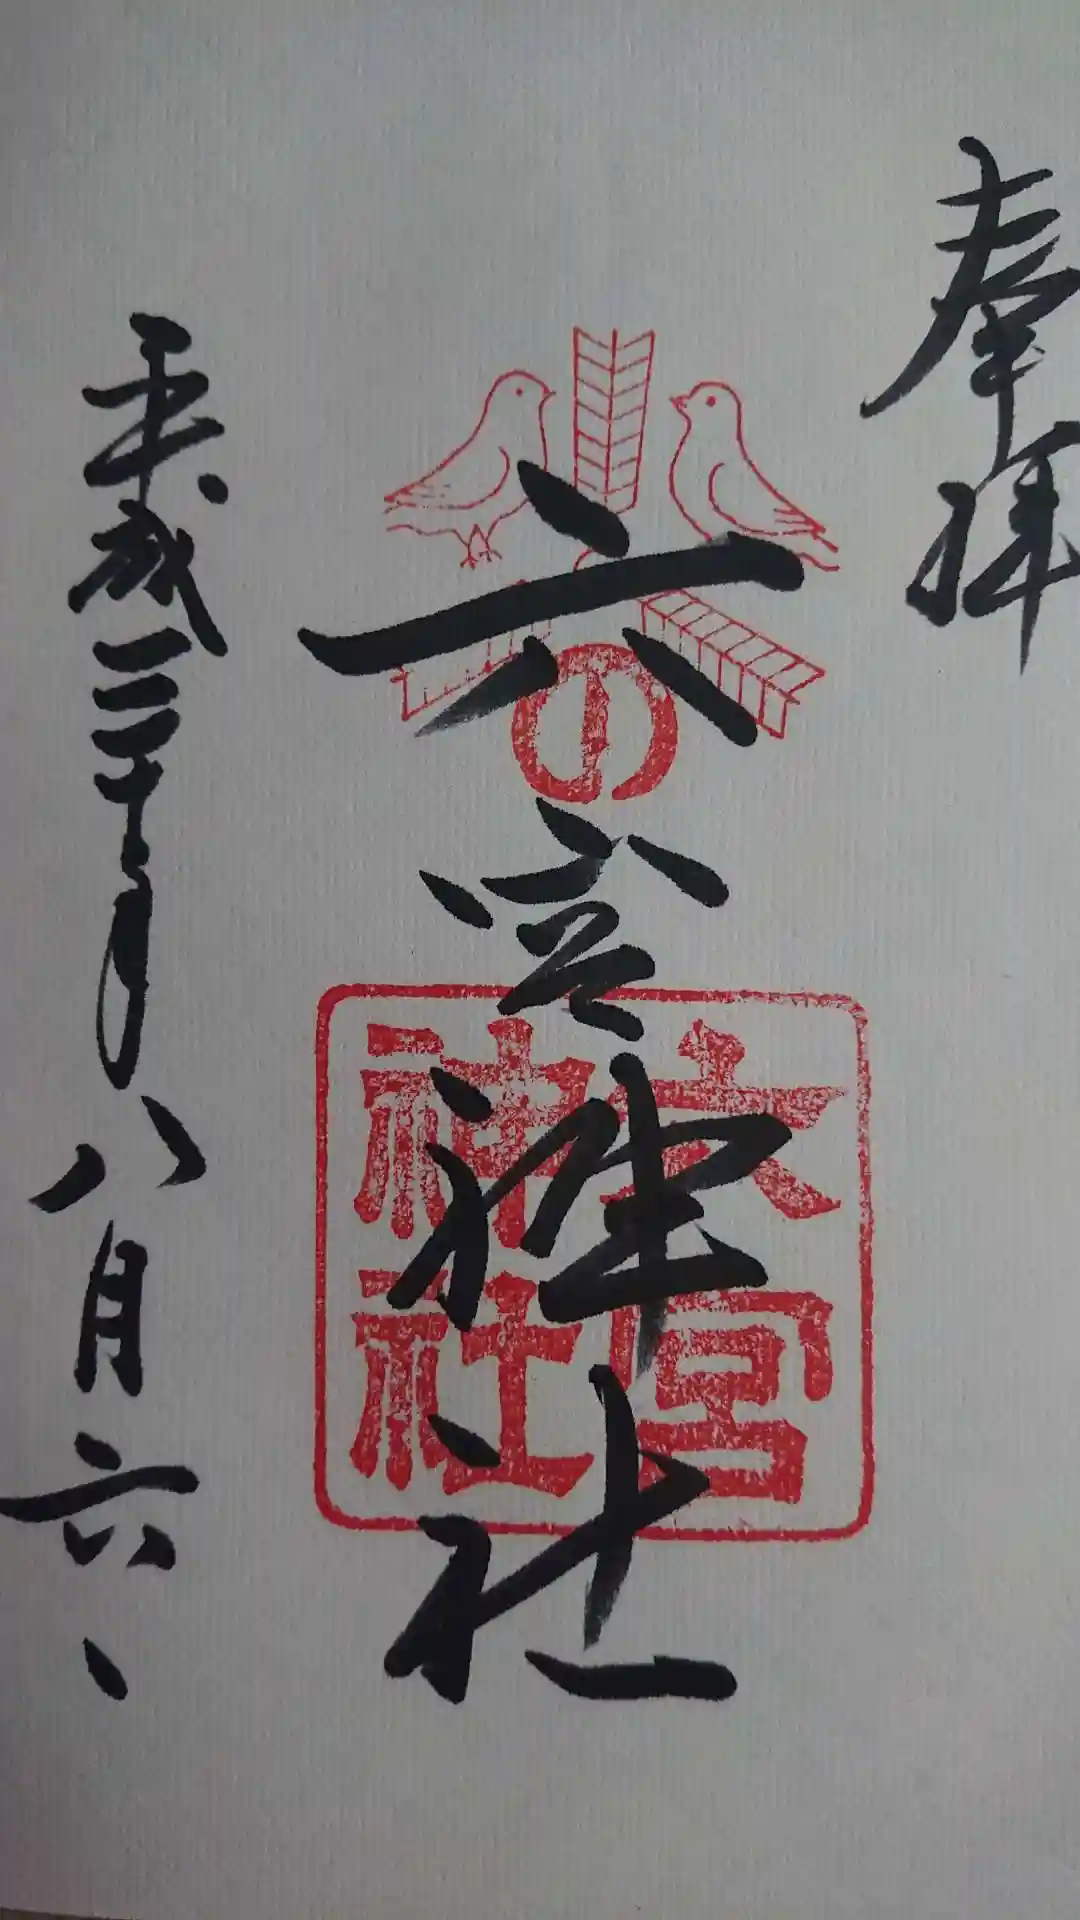 奉拝
六宮神社
の
六宮
神社
平成三十年八月六日